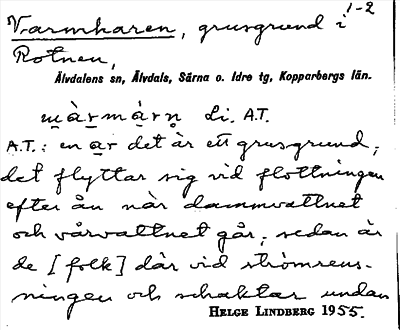 1-2
Varmharen, grusgrund i
Rotnen,
Älvdalens sn, Älvdals, Särna o. Idre tg, Kopparbergs län.
màrmárṇ Li. A.T.
A.T.: en ar det är ett grusgrund,
det flyttar sig vid flottningen
efter ån när dammvattnet
och vårvattnet går, sedan är
de [folk] där vid strömrens-
ningen och schaktar undan
HELGE LINDBERG 1955.